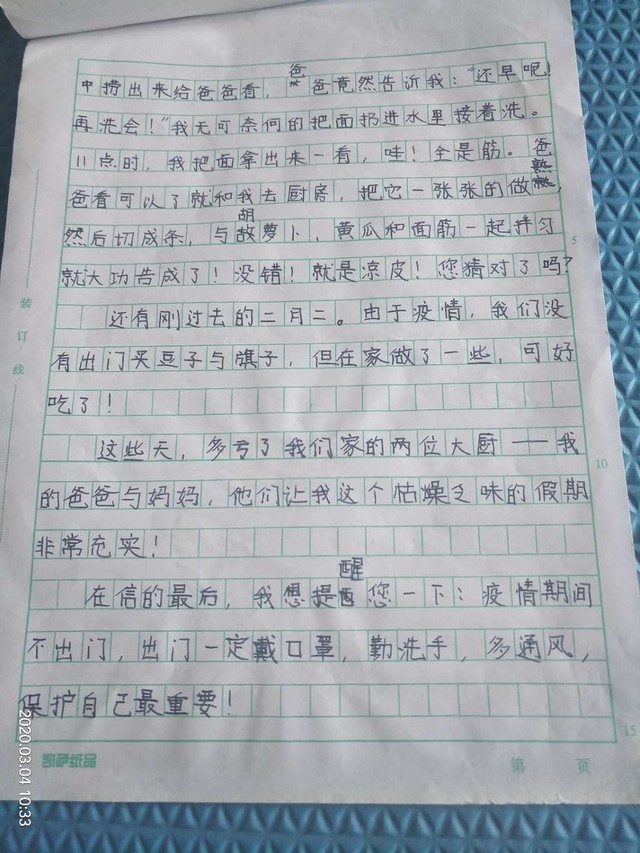 中捞出来给爸爸看，爸爸竟然告诉我："还早呢！
再洗会！"我无可奈何的把面扔进水里接着洗。
11点时，我把面拿出来一看，哇！全是筋。爸
爸看可以了就和我去厨房，把它一张张的做熟，
然后切成条，与胡萝卜，黄瓜和面筋一起拌匀
就大功告成了！没错！就是凉皮！您猜对了吗？
还有刚过去的二月二。由于疫情，我们没
有出门买豆子与棋子，但在家做了一些，可好
吃了！
这些天，多亏了我们家的两位大厨——我
的爸爸与妈妈，他们让我这个枯燥乏味的假期
非常充实！
在信的最后，我想提醒您一下：疫情期间
不出门，出门一定戴口罩，勤洗手，多通风，
保护自己最重要！
装
订
线
5
10
15
凯萨纸品
第 页
2020.03.04 10:33